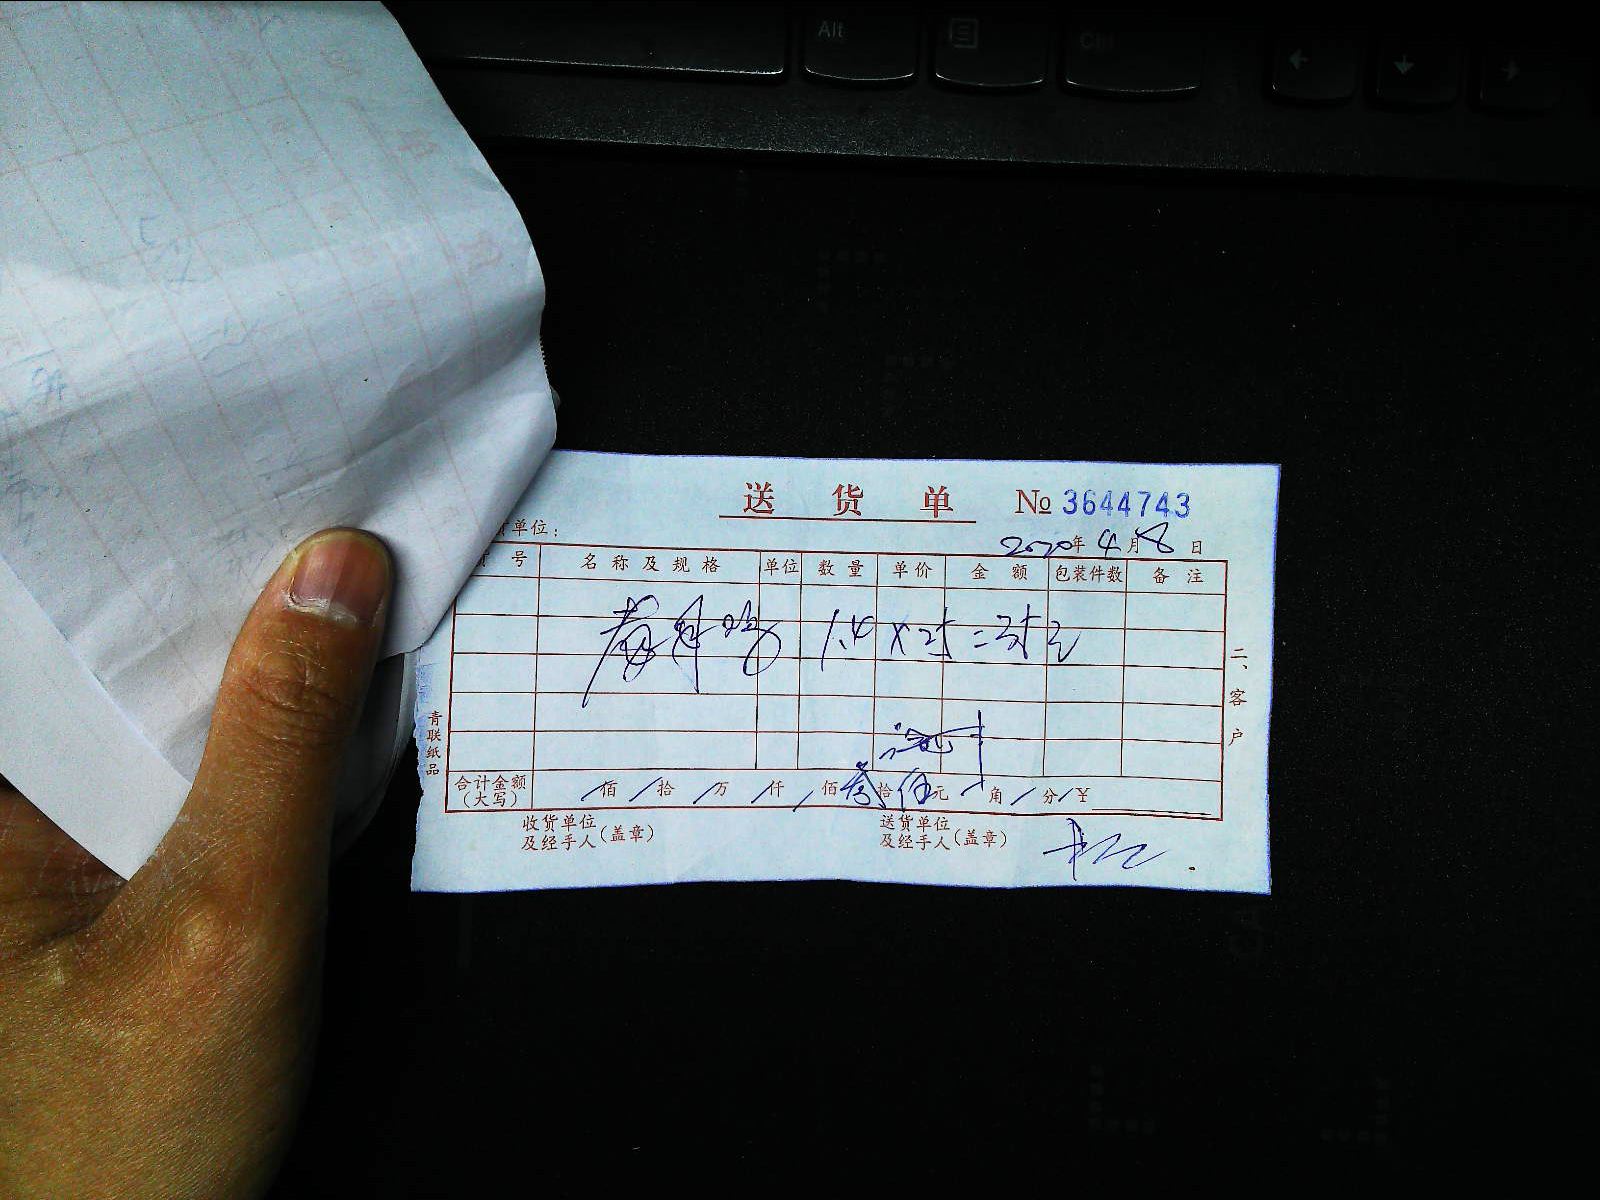 Alt
Ctrl
送货单 № 3644743
单位：
2020年4月8日
号 名称及规格 单位 数量 单价 金额 包装件数 备注
1.4 X 25 = 35元
合计金额（大写） 佰 拾 万 仟 佰 叁拾伍元 角 分 ¥
收货单位及经手人（盖章） 送货单位及经手人（盖章）
二、客户
青联纸品